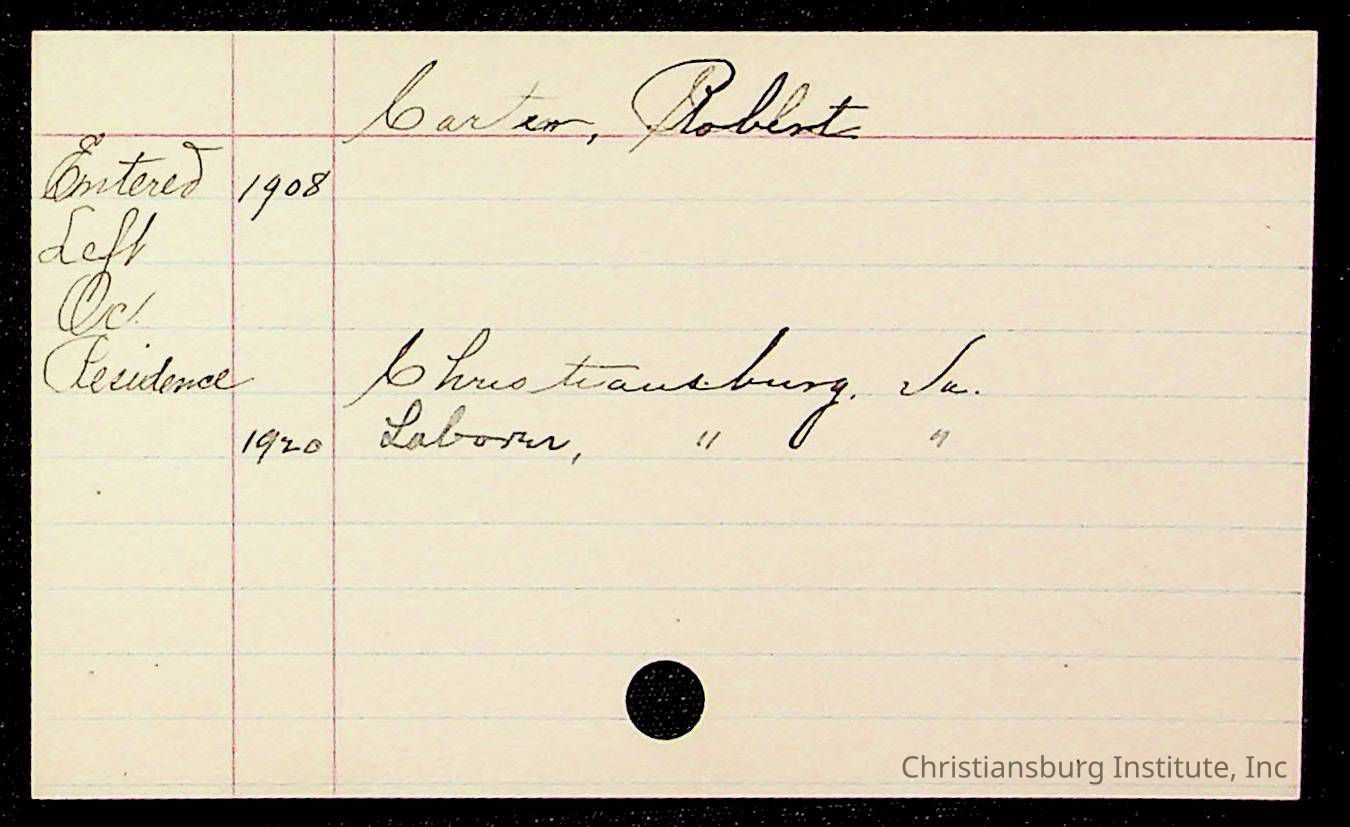 Carter, Robert
Entered 1908
Left
Oc.
Residence Christiansburg, Va.
1920 Laborer, " "
Christiansburg Institute, Inc